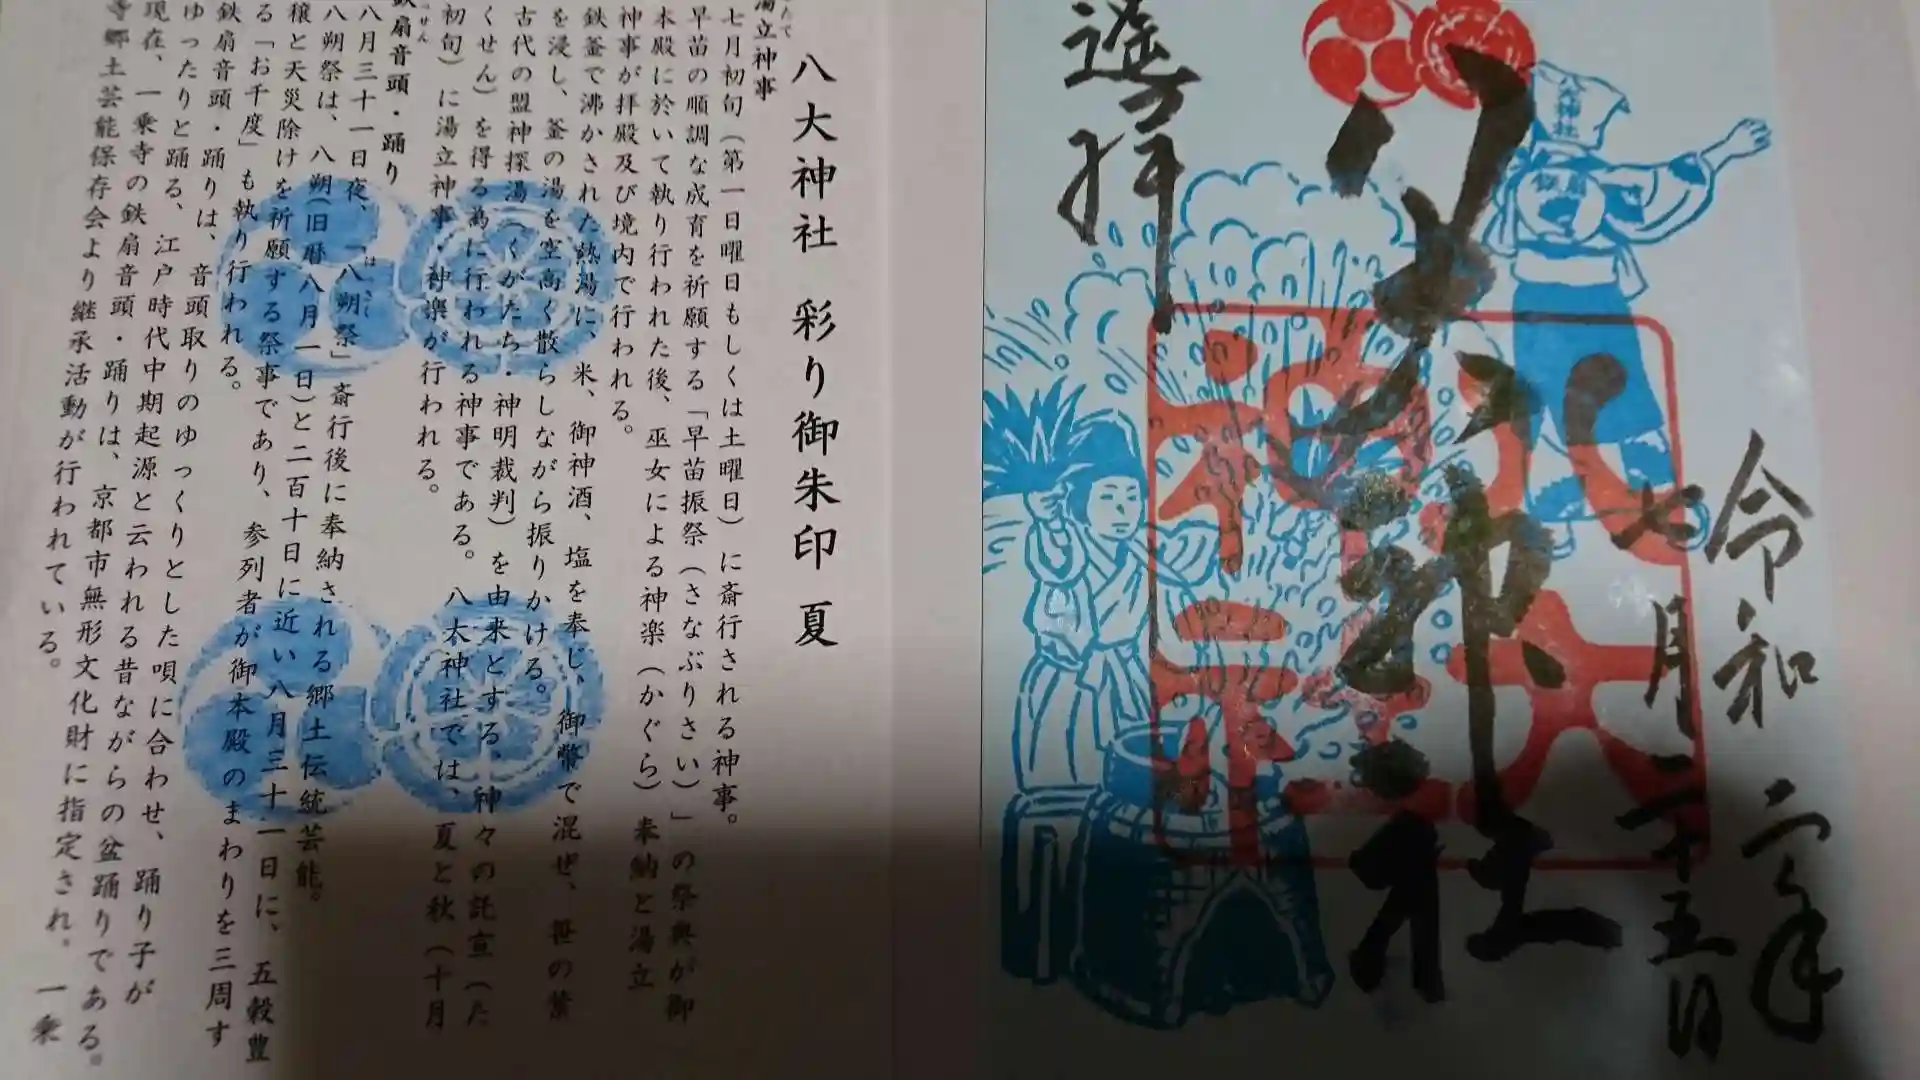 遙拝
八大神社
八大神社
令和二年
七月二十五日
八大神社
鉄扇
八大神社 彩り御朱印 夏
湯立神事
七月初旬(第一日曜日もしくは土曜日)に斎行される神事。
早苗の順調な成育を祈願する「早苗振祭(さなぶりさい)」の祭典が御
本殿に於いて執り行われた後、巫女による神楽(かぐら)奉納と湯立
神事が拝殿及び境内で行われる。
鉄釜で沸かされた熱湯に、米、御神酒、塩を奉じ、御幣で混ぜ、笹の葉
を浸し、釜の湯を空高く散らしながら振りかける。
古代の盟神探湯(くがたち・神明裁判)を由来とする、神々の託宣(た
くせん)を得る為に行われる神事である。八大神社では、夏と秋(十月
初旬)に湯立神事・神楽が行われる。
鉄扇音頭・踊り
八月三十一日夜、「八朔祭」斎行後に奉納される郷土伝統芸能。
八朔祭は、八朔(旧暦八月一日)と二百十日に近い八月三十一日に、五穀豊
穣と天災除けを祈願する祭事であり、参列者が御本殿のまわりを三周す
る「お千度」も執り行われる。
鉄扇音頭・踊りは、音頭取りのゆっくりとした唄に合わせ、踊り子が
ゆったりと踊る、江戸時代中期起源と云われる昔ながらの盆踊りである。
現在、一乗寺の鉄扇音頭・踊りは、京都市無形文化財に指定され。一乗
寺郷土芸能保存会より継承活動が行われている。